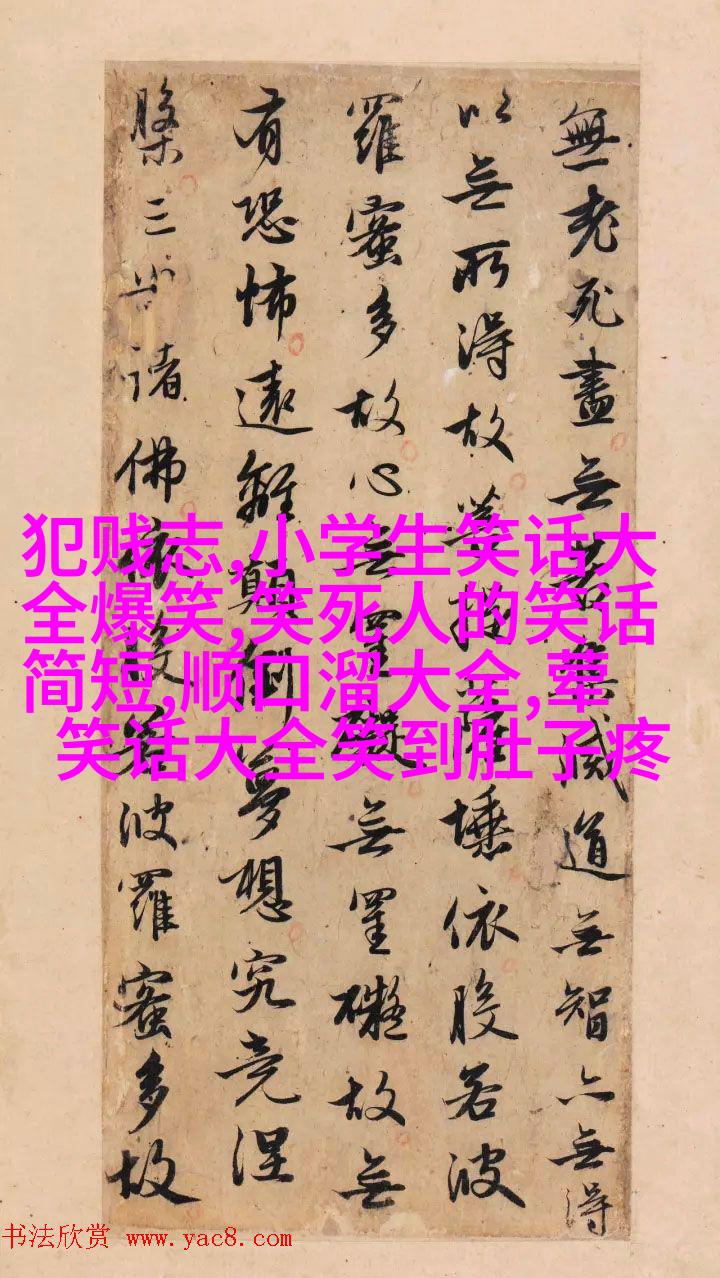 無老死盡无苦集滅道无智亦無得
以无所得故菩提薩埵依般若波
羅蜜多故心无罣礙无罣礙故无
有恐怖遠離顛倒夢想究竟涅
槃三世諸佛依般若波羅蜜多故
犯贱志,小学生笑话大
全爆笑,笑死人的笑话
简短,顺口溜大全,荤
笑话大全笑到肚子疼
书法欣赏 www.yac8.com